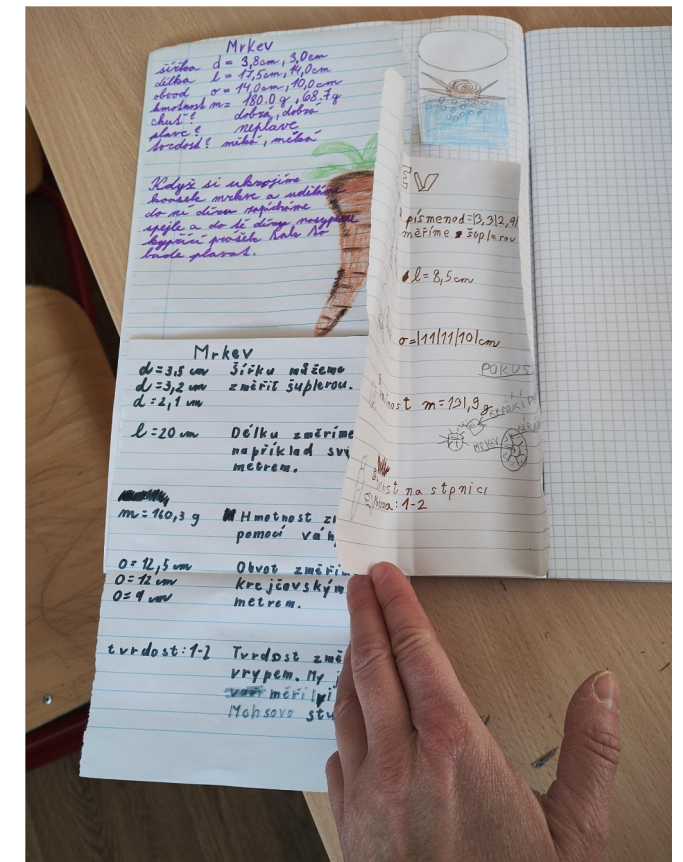 Mrkev
šířka d = 3,8cm, 3,0cm
délka l = 17,5cm, 14,0cm
obvod o = 14,0cm, 10,0cm
hmotnost m = 180.0 g, 68.7 g
chuť? dobrá, dobrá
plave? neplave
tvrdost? měkká, měkká
Když si ukrojíme
kousek mrkve a uděláme
do ní díru zapícháme
špejle a do té díry nasypeme
kypřící prášek
bude plavat.
Mrkev
d = 3,5 cm Šířku můžeme
d = 3,2 cm změřit šuplerou.
d = 2,1 cm
l = 20 cm Délku změříme
například sv
metrem.
m = 160,3 g Hmotnost z
pomocí váh
o = 12,5 cm Obvot změřím
o = 12 cm krejčovským
o = 9 cm metrem.
tvrdost: 1-2 Tvrdost změ
vrypem. My
měřili
Mohsovo stu
EV
písmenod=|3,3|2,9|
měříme šuplerou
l = 8,5cm
o=|11|11|10|cm
POKUS
nost m = 131,9g
MRKEV
ost na stpnici
: 1-2